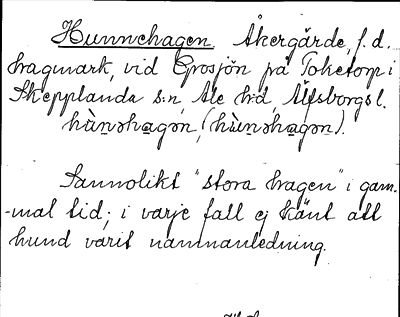 Hunnehagen Åkergärde, f.d.
hagmark, vid Grosjön på Toketorp i
Skepplanda s:n, Ale h:d, Älfsborgs l.
hùnəhagən, (hùnəhagən).
Sannolikt "stora hagen" i gam-
-mal tid; i varje fall ej känt att
hund varit namnanledning.